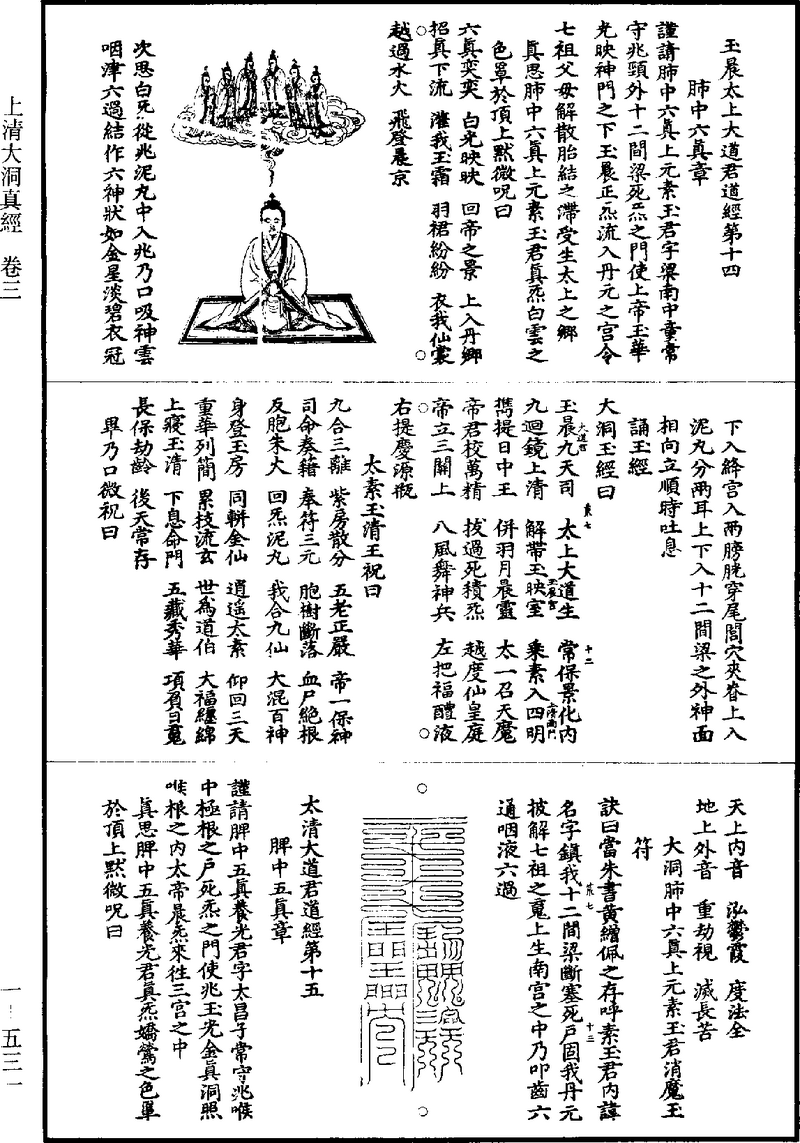 上清大洞真經 卷三
一—五三一
玉晨太上大道君道經第十四
肺中六真章
謹請肺中六真上元素玉君字梁南中童常
守兆頸外十二間梁死炁之門使上帝玉華
光映神門之下玉晨正炁流入丹元之宮令
七祖父母解散胎結之滯受生太上之鄉
真思肺中六真上元素玉君真炁白雲之
色罩於頂上默微呪曰
六真奕奕 白光映映 回帝之景 上入丹鄉
招真下流 灌我玉霜 羽裙紛紛 衣我仙裳
越過水火 飛登晨京
次思白炁從兆泥丸中入兆乃口吸神雲
咽津六過結作六神狀如金星淡碧衣冠
下入絳宮入兩膀胱穿尾閭穴夾脊上入
泥丸分兩耳上下入十二間梁之外神面
相向立順時吐息
誦玉經
大洞玉經曰
玉晨九天司 太上大道生 常保景化內
大道君
九迴鏡上清 解帶玉映室 乘素入四明
玉晨宮 上清南門
攜提日中王 併羽月晨靈 太一召天魔
帝君校萬精 拔過死積炁 越度仙皇庭
帝立三關上 八風舞神兵 左把福醴液
右提慶源瓶
太素玉清王祝曰
九合三離 紫房散分 五老正嚴 帝一保神
司命奏籍 奉符三元 胞樹斷落 血尸絕根
反胞朱火 回炁泥丸 我合九仙 大混百神
身登玉房 同軿金仙 逍遙太素 仰回三天
重華列簡 累枝流玄 世為道伯 大福纏綿
上寢玉清 下息命門 五藏秀華 項負日寬
長保劫齡 後天常存
畢乃口微祝曰
天上內音 泓鬱霞 度法全
地上外音 重劫視 滅長苦
大洞肺中六真上元素玉君消魔玉
符
訣曰當朱書黃繒佩之存呼素玉君內諱
名字鎮我十二間梁斷塞死戶固我丹元
披解七祖之寬上生南宮之中乃叩齒六
通咽液六過
太清大道君道經第十五
脾中五真章
謹請脾中五真養光君字太昌子常守兆喉
中極根之戶死炁之門使兆玉光金真洞照
喉根之內太帝晨炁來往三宮之中
真思脾中五真養光君真炁嬌鶯之色罩
於頂上默微呪曰